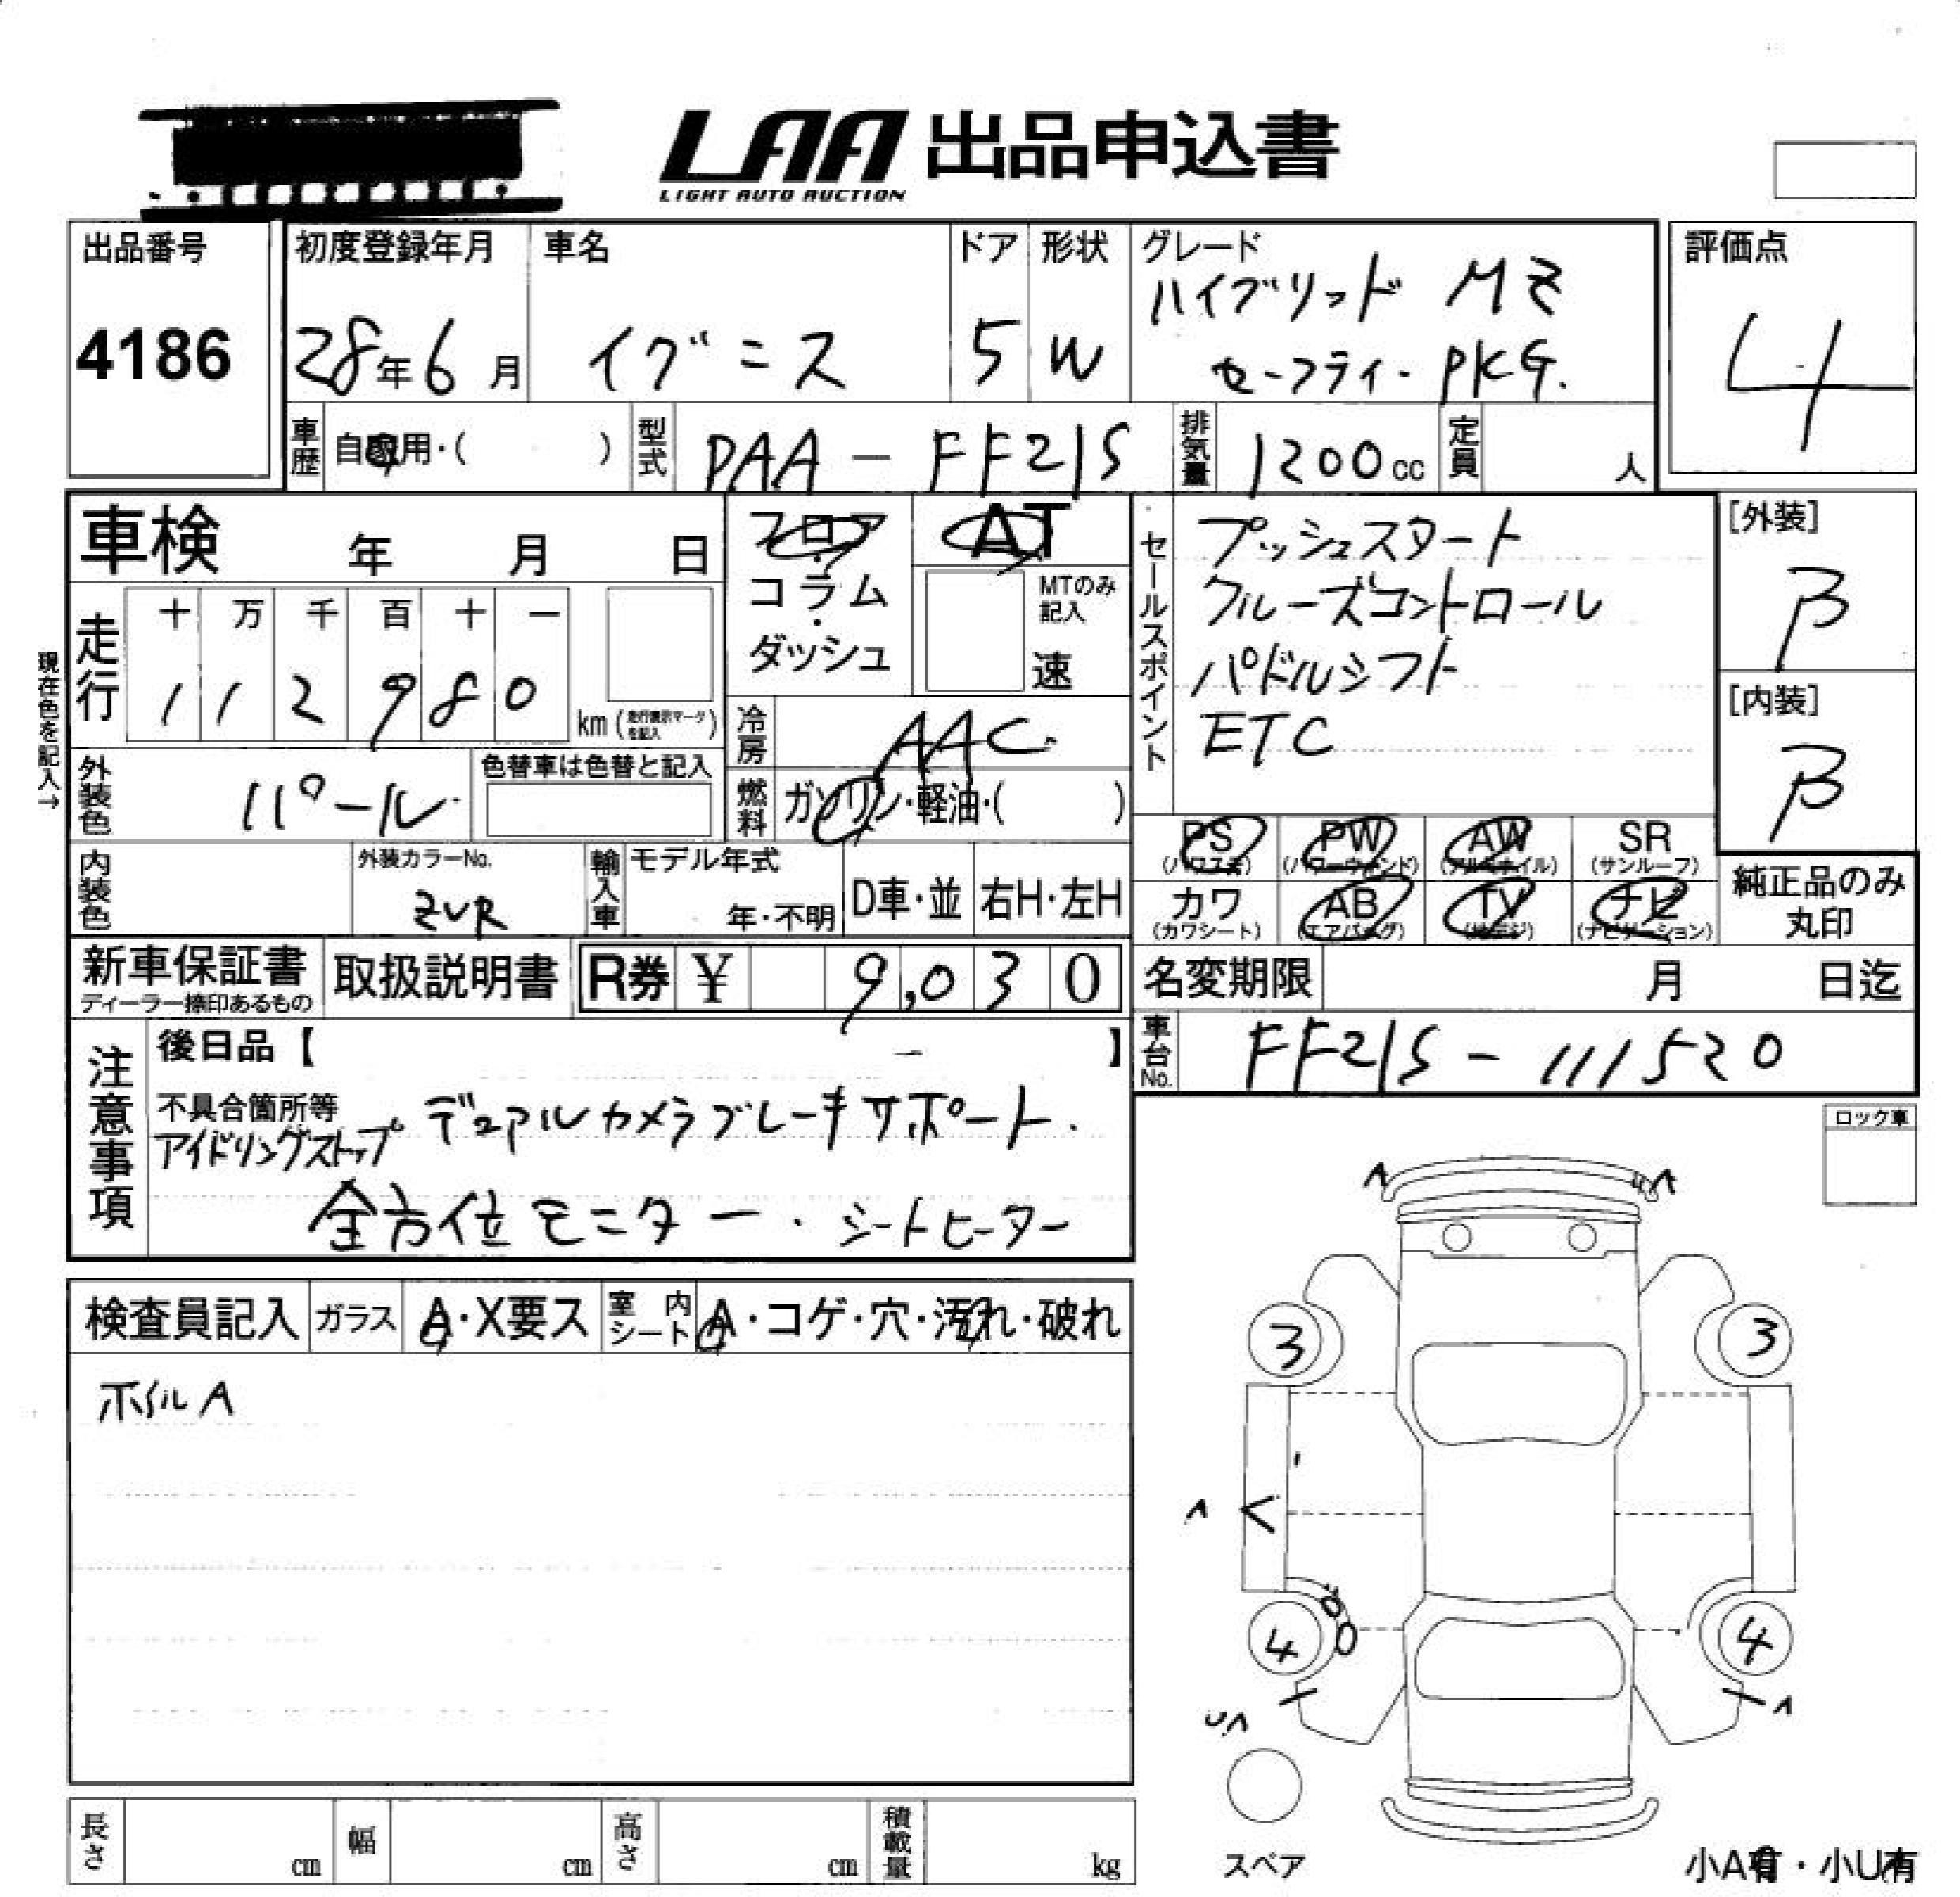 LAA 出品申込書
LIGHT AUTO AUCTION
出品番号
4186
初度登録年月
28年6月
車名
イグニス
ドア
5
形状
W
グレード
ハイブリッド MZ
セーフティーPKG.
評価点
4
車歴
自家用・( )
型式
DAA - FF21S
排気量
1200cc
定員
人
車検 年 月 日
フロア・コラム・ダッシュ
AT
MTのみ記入
速
セールスポイント
プッシュスタート
クルーズコントロール
パドルシフト
ETC
[外装]
B
[内装]
B
現在色を記入→
走行
十 万 千 百 十 一
1 1 2 9 8 0
km (走行表示マークを記入)
冷房
AAC
外装色
パール
色替車は色替と記入
燃料
ガソリン・軽油・( )
PS
(パワステ)
PW
(パワーウィンド)
AW
(アルミホイル)
SR
(サンルーフ)
カワ
(カワシート)
AB
(エアバッグ)
TV
(地デジ)
ナビ
(ナビゲーション)
純正品のみ
丸印
内装色
外装カラーNo.
ZVR
輸入車
モデル年式
年・不明
D車・並
右H・左H
新車保証書
ディーラー捺印あるもの
取扱説明書
R券 ¥ 9,030
名変期限 月 日迄
車台No.
FF21S - 111520
注意事項
後日品【 】
不具合箇所等
デュアルカメラブレーキサポート.
アイドリングストップ
全方位モニター . シートヒーター
ロック車
検査員記入
ガラス
A・X要ス
室内シート
A・コゲ・穴・汚れ・破れ
ホイルA
A
A
3
3
A
4
4
UA
A
スペア
長さ cm
幅 cm
高さ cm
積載量 kg
小A有・小U有